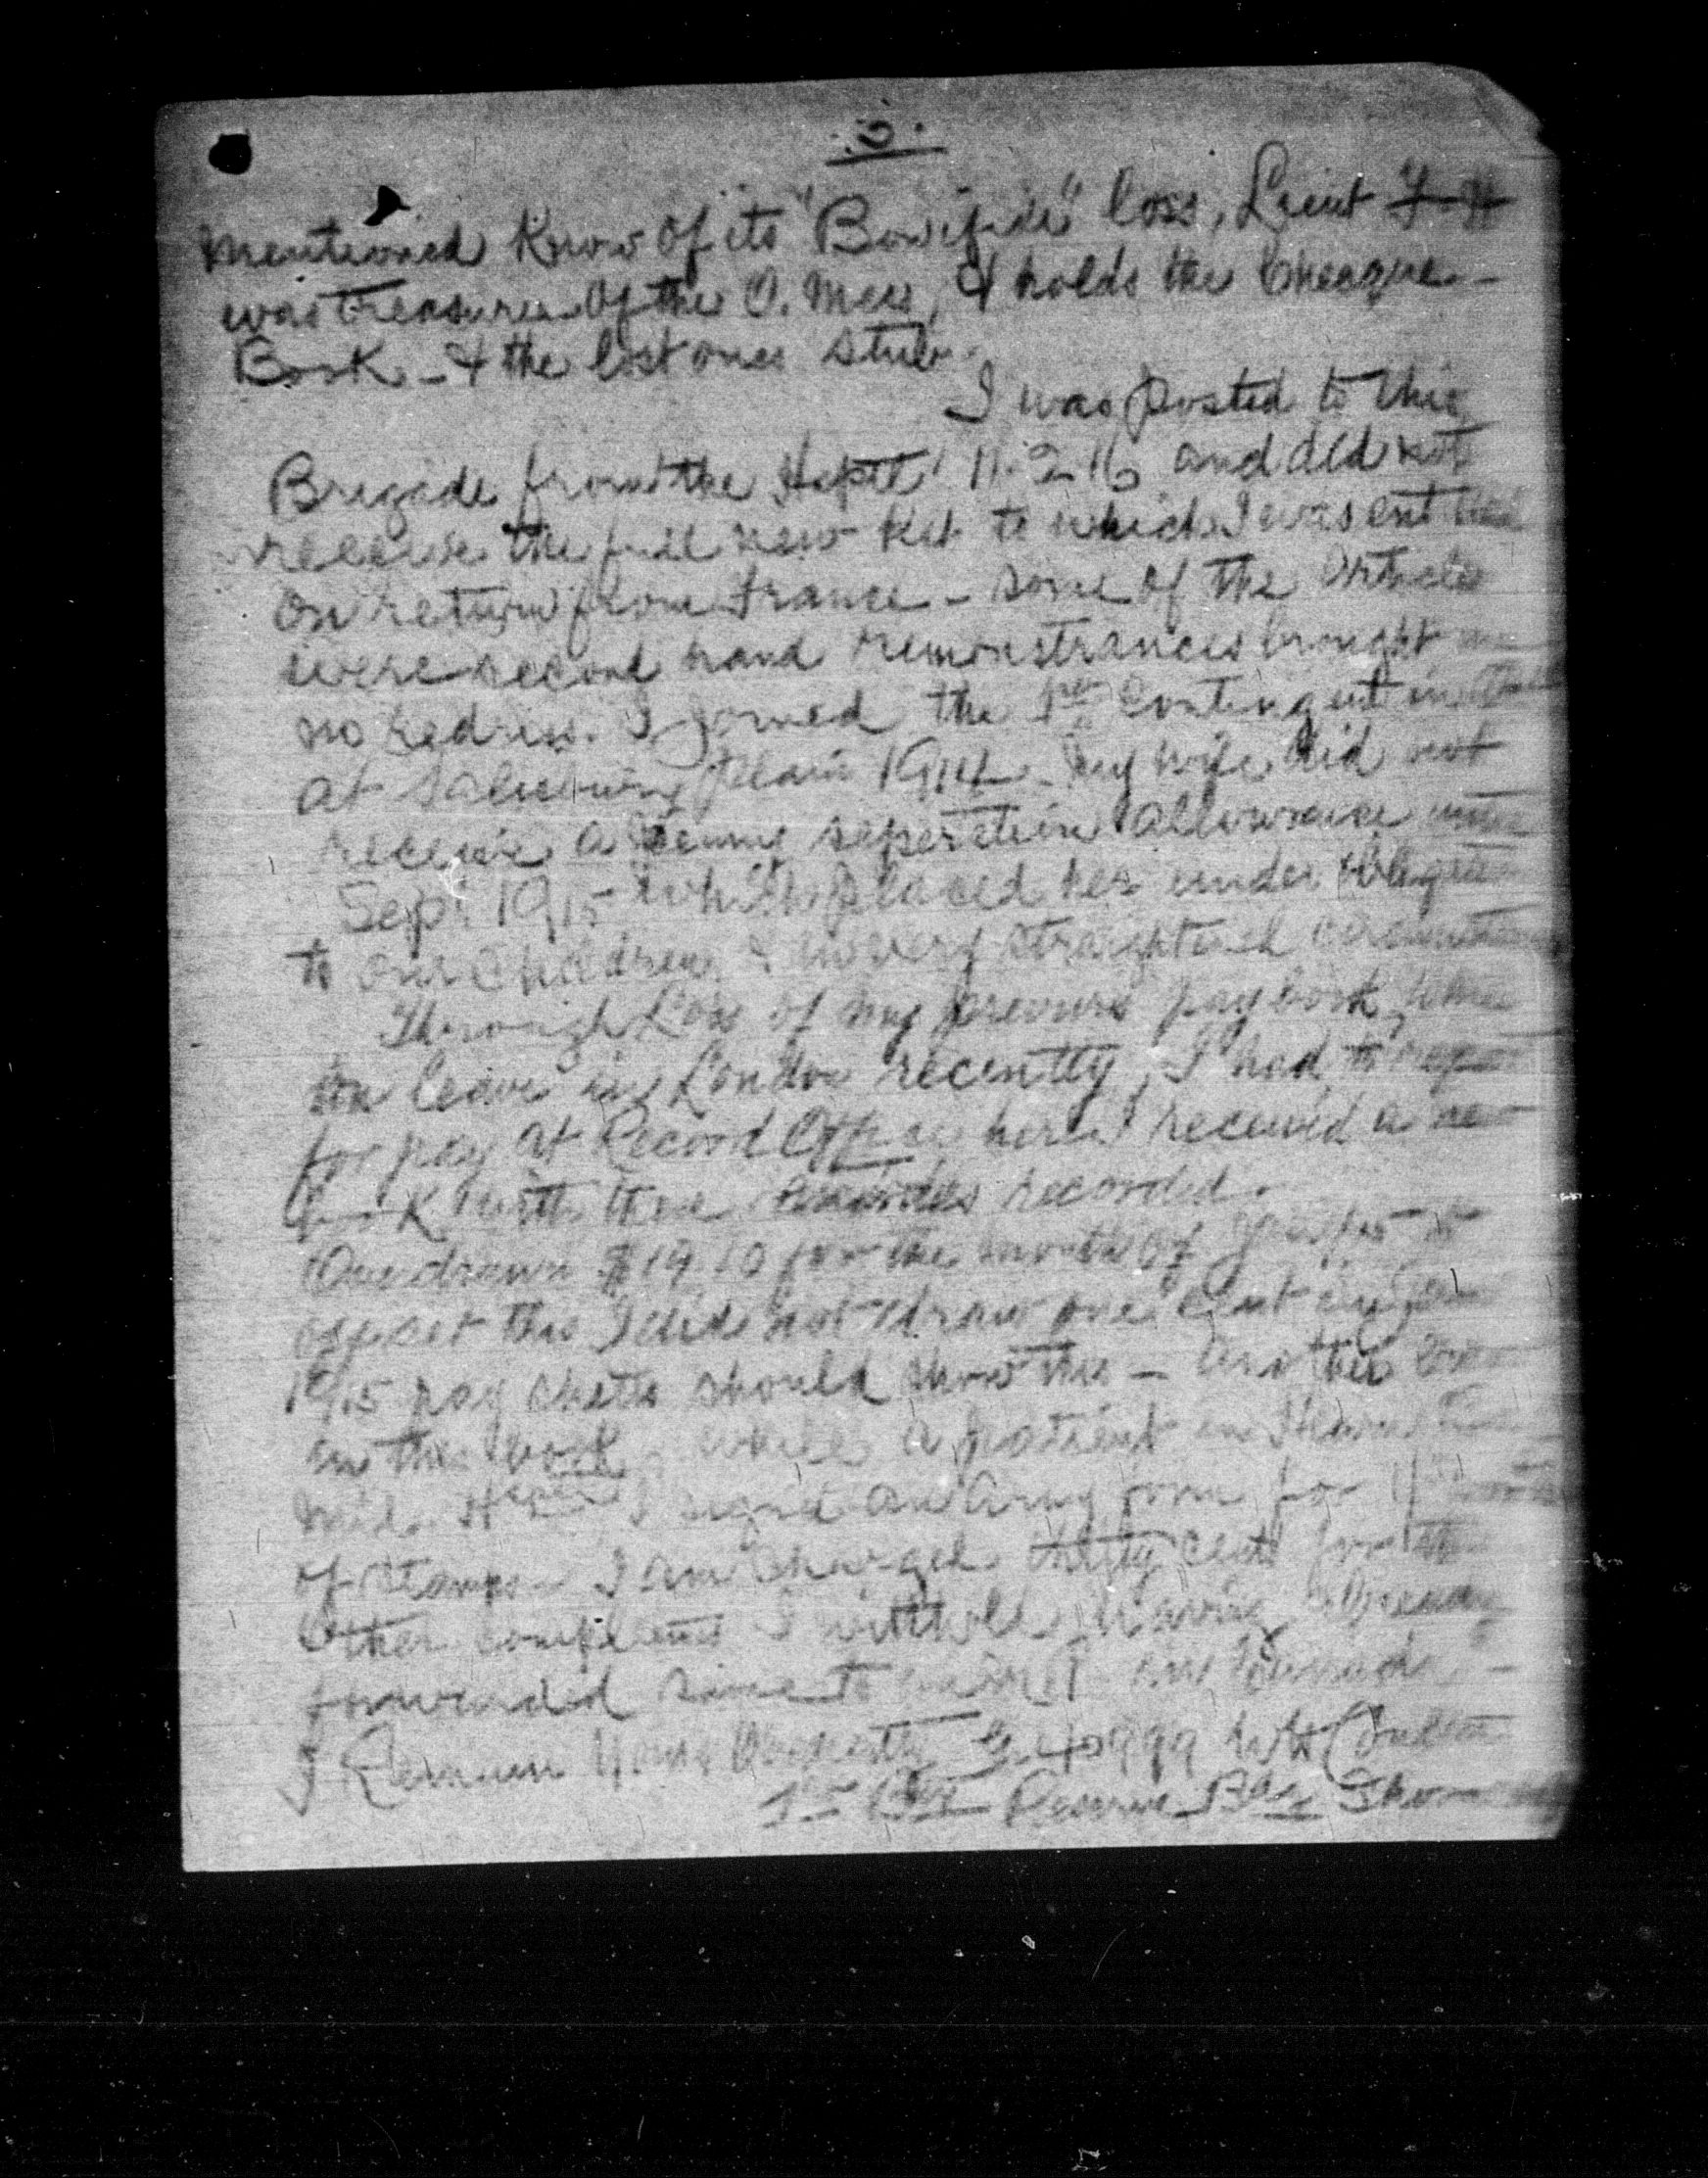 .3.
mentioned Know of its "Bonifide" loss, Lieut
was treasurer of the O. Mess, & holds the Cheaque -
Book - & the lost ones stub.
I was posted to this
Brigade from the Hsptl 11-2-16 and did not
receive the full new Kit to which I was
on return from France - some of the Articles
were second hand remonstrances brought
no redress. I joined the 1st Contingent in
at Salisbury Plain 1914 - My wife did not
receive a penny seperation allowance
Sept 1915 which placed her under
to our Children & in very straightend
Through Loss of my previous pay book, when
on leave in London recently, I had to
for pay at Record Office here I received a
book with these recorded.
Overdrawn $19.10 for the month of
offset this I did not draw one cent in
1915 pay sheets should show this - another
in this book, while a patient in
Mil. I signed an Army form for
of stamps - I am charged cents for
Other complaints I withhold, having already
forwarded same to
I Remain Yours Obediently 40999
1st Reserve